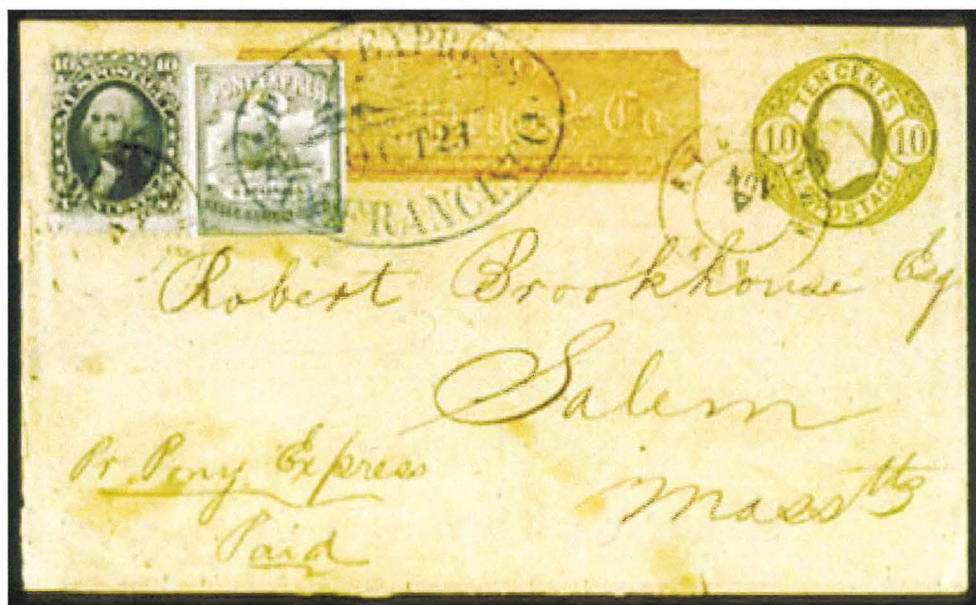 10 10
TEN CENTS
PONY EXPRESS
EXPRESS
& Co.
T 23
FRANCISCO
TEN CENTS
10 10
POSTAGE
NOV
Robert Brookhouse Esq
Salem
Masstts
Pr. Pony Express
Paid